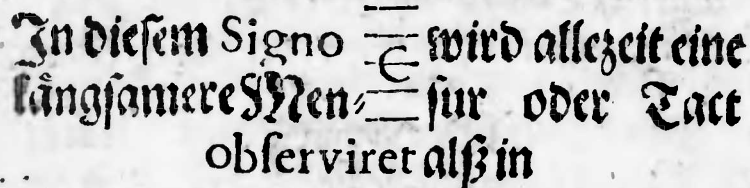 In dieſem Signo C wird allezeit eine
langſamere Menſur oder Tact
obſerviret alß in